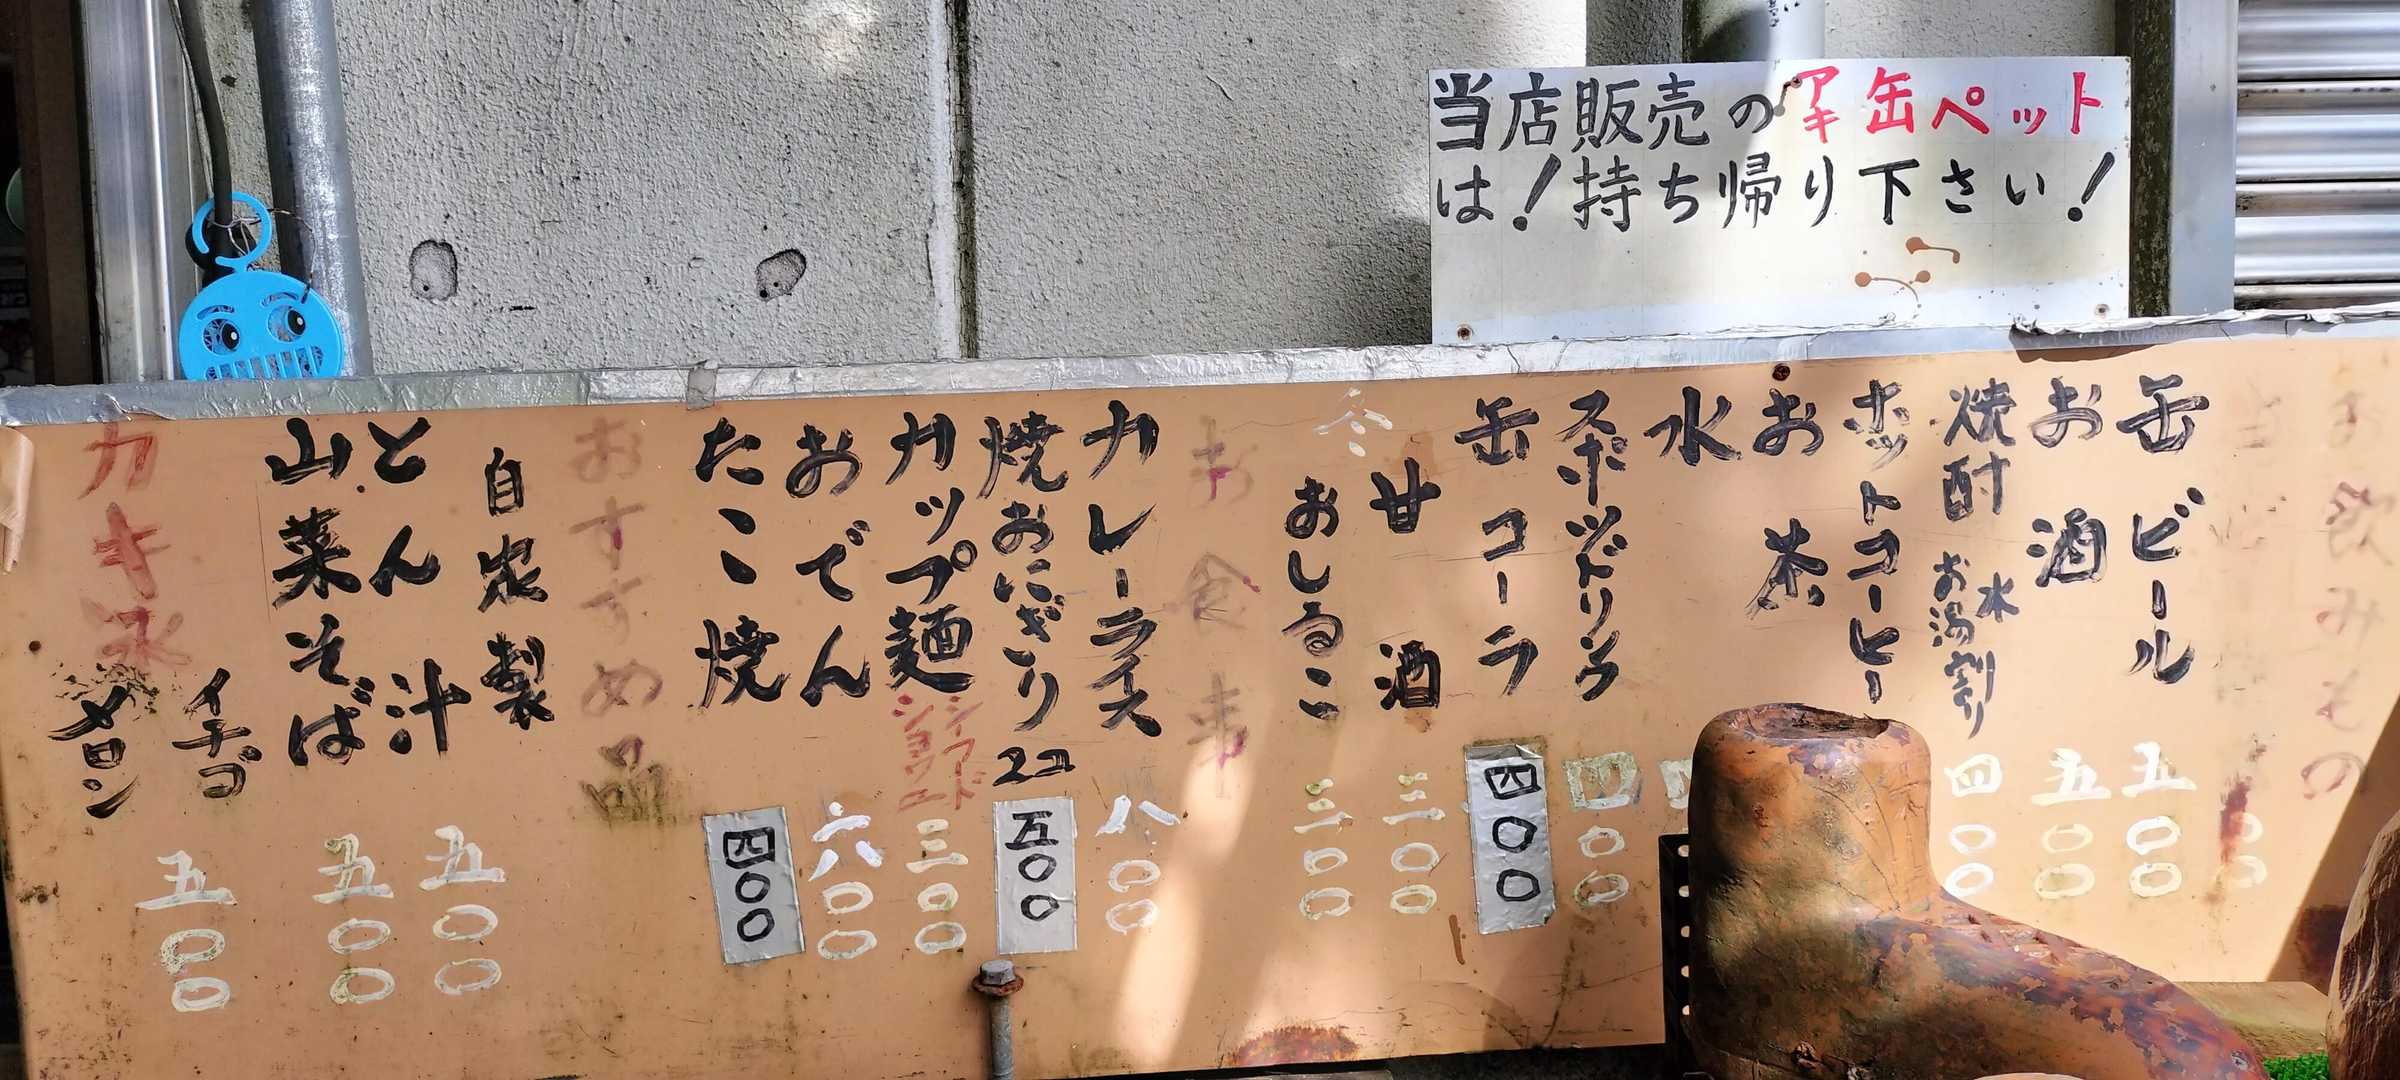 当店販売のアキ缶ペット
は!持ち帰り下さい!
お飲みもの
缶ビール 五〇〇
お酒 五〇〇
焼酎 水 お湯 割り 四〇〇
ホットコーヒー
お茶
水
スポーツドリンク 四〇〇
缶コーラ 四〇〇
甘酒 三〇〇
冬 おしるこ 三〇〇
お食事
カレーライス 八〇〇
焼おにぎり 2コ 五〇〇
カップ麺 シーフード ショウユ 三〇〇
おでん 六〇〇
たこ焼 四〇〇
おすすめ品
自家製
とん汁 五〇〇
山菜そば 五〇〇
カキ氷 イチゴ メロン 五〇〇